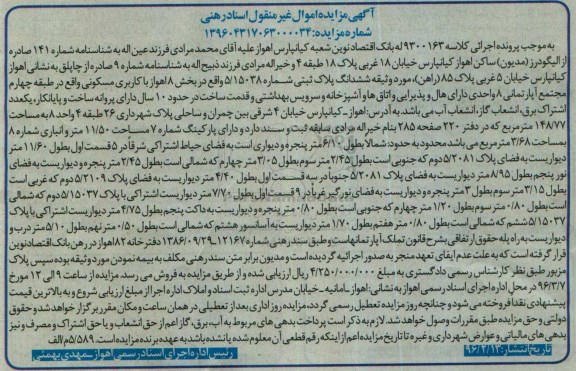 آگهی مزایده اموال غیر منقول اسناد رهنی
شماره مزایده: 139604317063000034
به موجب پرونده اجرائی کلاسه 9300163 له بانک اقتصاد نوین شعبه کیانپارس اهواز علیه آقای محمد مرادی فرزند عین اله به شناسنامه شماره 141 صادره
از الیگودرز (مدیون) ساکن اهواز کیانپارس خیابان 18 غربی پلاک 18 طبقه 4 و خیراله مرادی فرزند ذبیح اله به شناسنامه شماره 9 صادره از چاپلق به نشانی اهواز
کیانپارس خیابان 5 غربی پلاک 85 (راهن)، مورد وثیقه ششدانگ پلاک ثبتی شماره 5/15038 واقع در بخش 8 اهواز با کاربری مسکونی واقع در طبقه چهارم
مجتمع آپارتمانی 8 واحدی دارای هال و پذیرایی و اتاق ها و آشپزخانه و سرویس بهداشتی و قدمت ساخت در حدود 10 سال دارای پروانه ساخت و پایانکار، یکعدد
اشتراک برق، انشعاب گاز، انشعاب آب می باشد. به آدرس: اهواز - کیانپارس خیابان 4 شرقی بین چمران و ساحلی پلاک شهرداری 26 طبقه 4 واحد 8 به مساحت
148/77 متر مربع که در دفتر 220 صفحه 285 بنام خیراله مرادی سابقه ثبت و سند دارد و دارای پارکینگ شماره 7 مساحت 11/50 متر و انباری شماره 8
بمساحت 3/68 متر مربع می باشد محدود به حدود: شمالا بطول 6/10 متر پنجره و دیواری است به فضای حیاط اشتراکی شرقا در 5 قسمت اول بطول 11/60 متر
دیواریست به فضای پلاک 5/2081 دوم که جنوبی است بطول 2/45 متر سوم بطول 3/05 متر چهارم که شمالی است بطول 2/45 متر پنجره و دیواریست به فضای
نور پنجم بطول 8/95 متر دیواریست به فضای پلاک 5/2081 جنوبا در سه قسمت اول بطول 4/40 متر دیواریست به فضای پلاک 5/2109 دوم که غربی است
بطول 3/15 متر سوم بطول 3 متر پنجره و دیواریست به فضای نورگیر غربا در 9 قسمت اول بطول 7/70 متر دیواریست اشتراکی با پلاک 5/15037 دوم که شمالی
است بطول 0/80 متر سوم بطول 1/20 متر چهارم که جنوبی است بطول 0/80 متر پنجره و دیواریست به داکت پنجم بطول 4/75 متر دیواریست اشتراکی با پلاک
5/15037 ششم که شمالی است بطول 0/80 متر هفتم بطول 1/70 متر دیواریست به آسانسور هشتم که شمالی است بطول 0/50 متر نهم بطول 5/10 متر درب و
دیواریست به راه پله حقوق ارتفاقی بشرح قانون تملک آپارتمانهاست و طبق سند رهنی شماره 12167-1386/09/29 دفترخانه 82 اهواز در رهن بانک اقتصاد نوین
قرار گرفته است که به علت عدم ایفای تعهد منجر به صدور اجرائیه گردیده است و مدیون برابر متن سند رهنی مکلف به بیمه نمودن مورد وثیقه بوده سپس پلاک
مزبور طبق نظر کارشناس رسمی دادگستری به مبلغ 4/250/000/000 ریال ارزیابی شده و از طریق مزایده به فروش می رسد. مزایده از ساعت 9 الی 12 مورخ
96/3/7 در محل اداره اجرای اسناد رسمی اهواز به نشانی: اهواز - امانیه - خیابان مدرس اداره ثبت اسناد و املاک اداره اجرا از مبلغ ارزیابی شروع و به بالاترین قیمت
پیشنهادی نقدا فروخته می شود و چنانچه روز مزایده تعطیل رسمی گردد، مزایده روز اداری بعد از تعطیلی در همان ساعت و مکان مقرر برگزار خواهد شد و حقوق
دولتی و حق مزایده طبق مقررات وصول خواهد شد. لازم به ذکر است پرداخت بدهی های مربوط به آب، برق، گاز اعم از حق انشعاب و یا حق اشتراک و مصرف و نیز
بدهی های مالیاتی و عوارض شهرداری و غیره تا تاریخ مزایده اعم از اینکه رقم قطعی آن معلوم شده یا نشده باشد به عهده برنده مزایده است. 5/589 م الف
تاریخ انتشار: 96/2/12
رئیس اداره اجرای اسناد رسمی اهواز - مهدی بهمئی